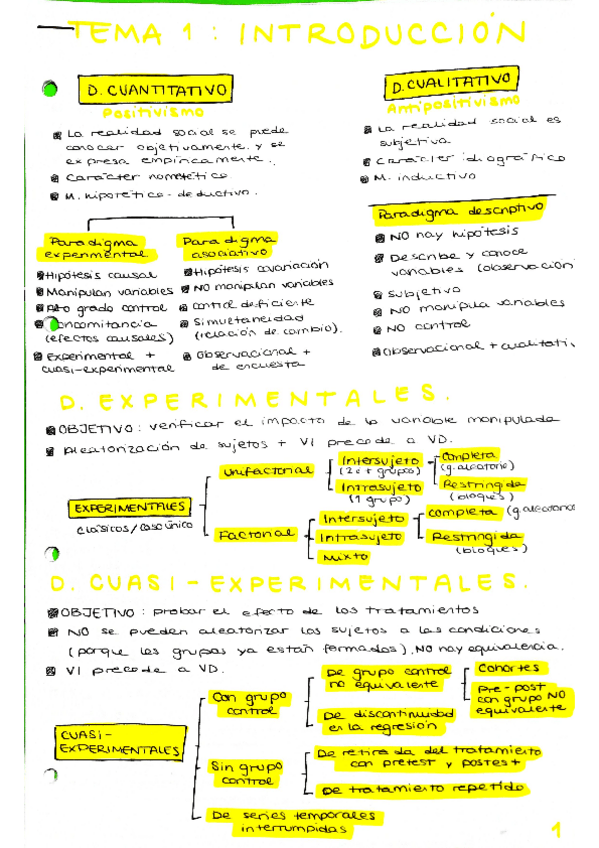 TEMA 1 : INTRODUCCIÓN
D. CUANTITATIVO
Positivismo
La realidad social se puede
conocer objetivamente y se
expresa empíricamente.
Carácter nometético
M. hipotético-deductivo.
D. CUALITATIVO
Antipositivismo
La realidad social es
subjetiva
Carácter idiográfico
M. inductivo
Paradigma
experimental
Hipótesis causal
Manipulan variables
Alto grado control
Concomitancia
(efectos causales)
Experimental +
cuasi-experimental
Paradigma
asociativo
Hipótesis covariación
NO manipulan variables
Control deficiente
Simultaneidad
(relación de cambio).
Observacional +
de encuesta
Paradigma descriptivo
NO hay hipótesis
Describe y conoce
variables (observación
Subjetivo
NO manipula variables
NO control
Observacional + cualitativ
D. EXPERIMENTALES.
OBJETIVO: verificar el impacto de la variable manipulada
Aleatorización de sujetos + VI precede a VD.
EXPERIMENTALES
clásicos/caso único
Unifactorial
Intersujeto
(2 o + grupos)
Completa
(g.aleatorio)
Restringida
(bloques)
Intrasujeto
(1 grupo)
Factorial
Intersujeto
Completa (g.aleatorio
Restringida
(bloques)
Intrasujeto
Mixto
D. CUASI-EXPERIMENTALES.
OBJETIVO: probar el efecto de los tratamientos
NO se pueden aleatorizar los sujetos a las condiciones
(porque los grupos ya están formados). NO hay equivalencia.
VI precede a VD.
CUASI-
EXPERIMENTALES
Con grupo
control
De grupo control
no equivalente
Cohortes
Pre-post
con grupo NO
equivalente
De discontinuidad
en la regresión
Sin grupo
control
De retirada del tratamiento
con pretest y postest
De tratamiento repetido
De series temporales
interrumpidas
1